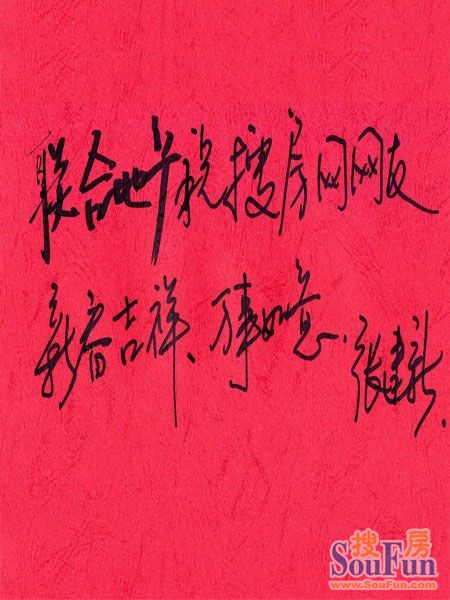 联合地产祝搜房网网友
新春吉祥、万事如意. 张建新.
搜房
SouFun
www.SouFun.com